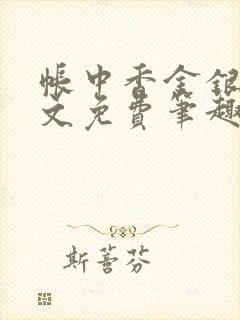 帐中香金银
文免费笔趣
斯蒈芬